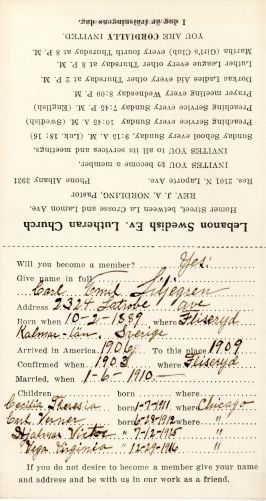 Lebanon Swedish Ev. Lutheran Church
Homer Street, between La Crosse and Lamon Ave.
REV. J. A. NORDLING, Pastor,
Res. 2101 N. Laporte Ave. Phone Albany 3931
INVITES YOU to become a member.
INVITES YOU to all its services and meetings.
Sunday School every Sunday, 9:15 A. M. (Luk. 18: 16)
Preaching Service every Sunday 10:45 A. M. (Swedish)
Preaching Service every Sunday 7:45 P. M. (English)
Prayer meeting every Wednesday 8:00 P. M.
Dorkas Ladies Aid every other Thursday at 2 P. M.
Luther League every other Thursday at 8 P. M.
Martha (Girl's) Club) every fourth Thursday at 8 P. M.
YOU ARE CORDIALLY INVITED.
I dag är frälsningens dag.
Will you become a member? Yes!
Give name in full
Carl Emil Liljegren
Address 2324 Latrobe Ave
Born when 10-2-1889 where Fliseryd
Kalmar-län Sverige
Arrived in America 1906 To this place 1909
Confirmed when 1903 where Fliseryd
Married, when 1-6-1910-
Children
Cecilia Theresia born 1-7-1911 where Chicago
Carl Verner born 6-28-1912 where "
Hjalmar Victor " 7-12-1915 "
Vega Virginia " 12-29-1916 "
If you do not desire to become a member give your name
and address and be with us in our work as a friend.